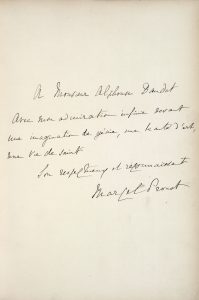 A Monsieur Alphonse Daudet
Avec mon admiration infinie devant
une imagination de génie, une haute d'art,
une vie de saint
Son respectueux et reconnaissant
Marcel Proust